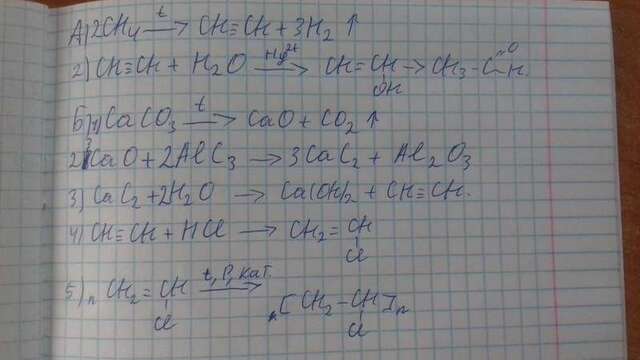 А) 2CH₄ —t→ CH≡CH + 3H₂ ↑
2) CH≡CH + H₂O —Hg²⁺→ CH=CH → CH₃-C=O H.
OH
Б) 1) CaCO₃ —t→ CaO + CO₂ ↑
2) 3CaO + 2AlC₃ → 3CaC₂ + Al₂O₃
3) CaC₂ + 2H₂O → Ca(OH)₂ + CH≡CH.
4) CH≡CH + HCl → CH₂=CH
Cl
5) n CH₂=CH —t, P, кат.→ [CH₂-CH]n
Cl Cl